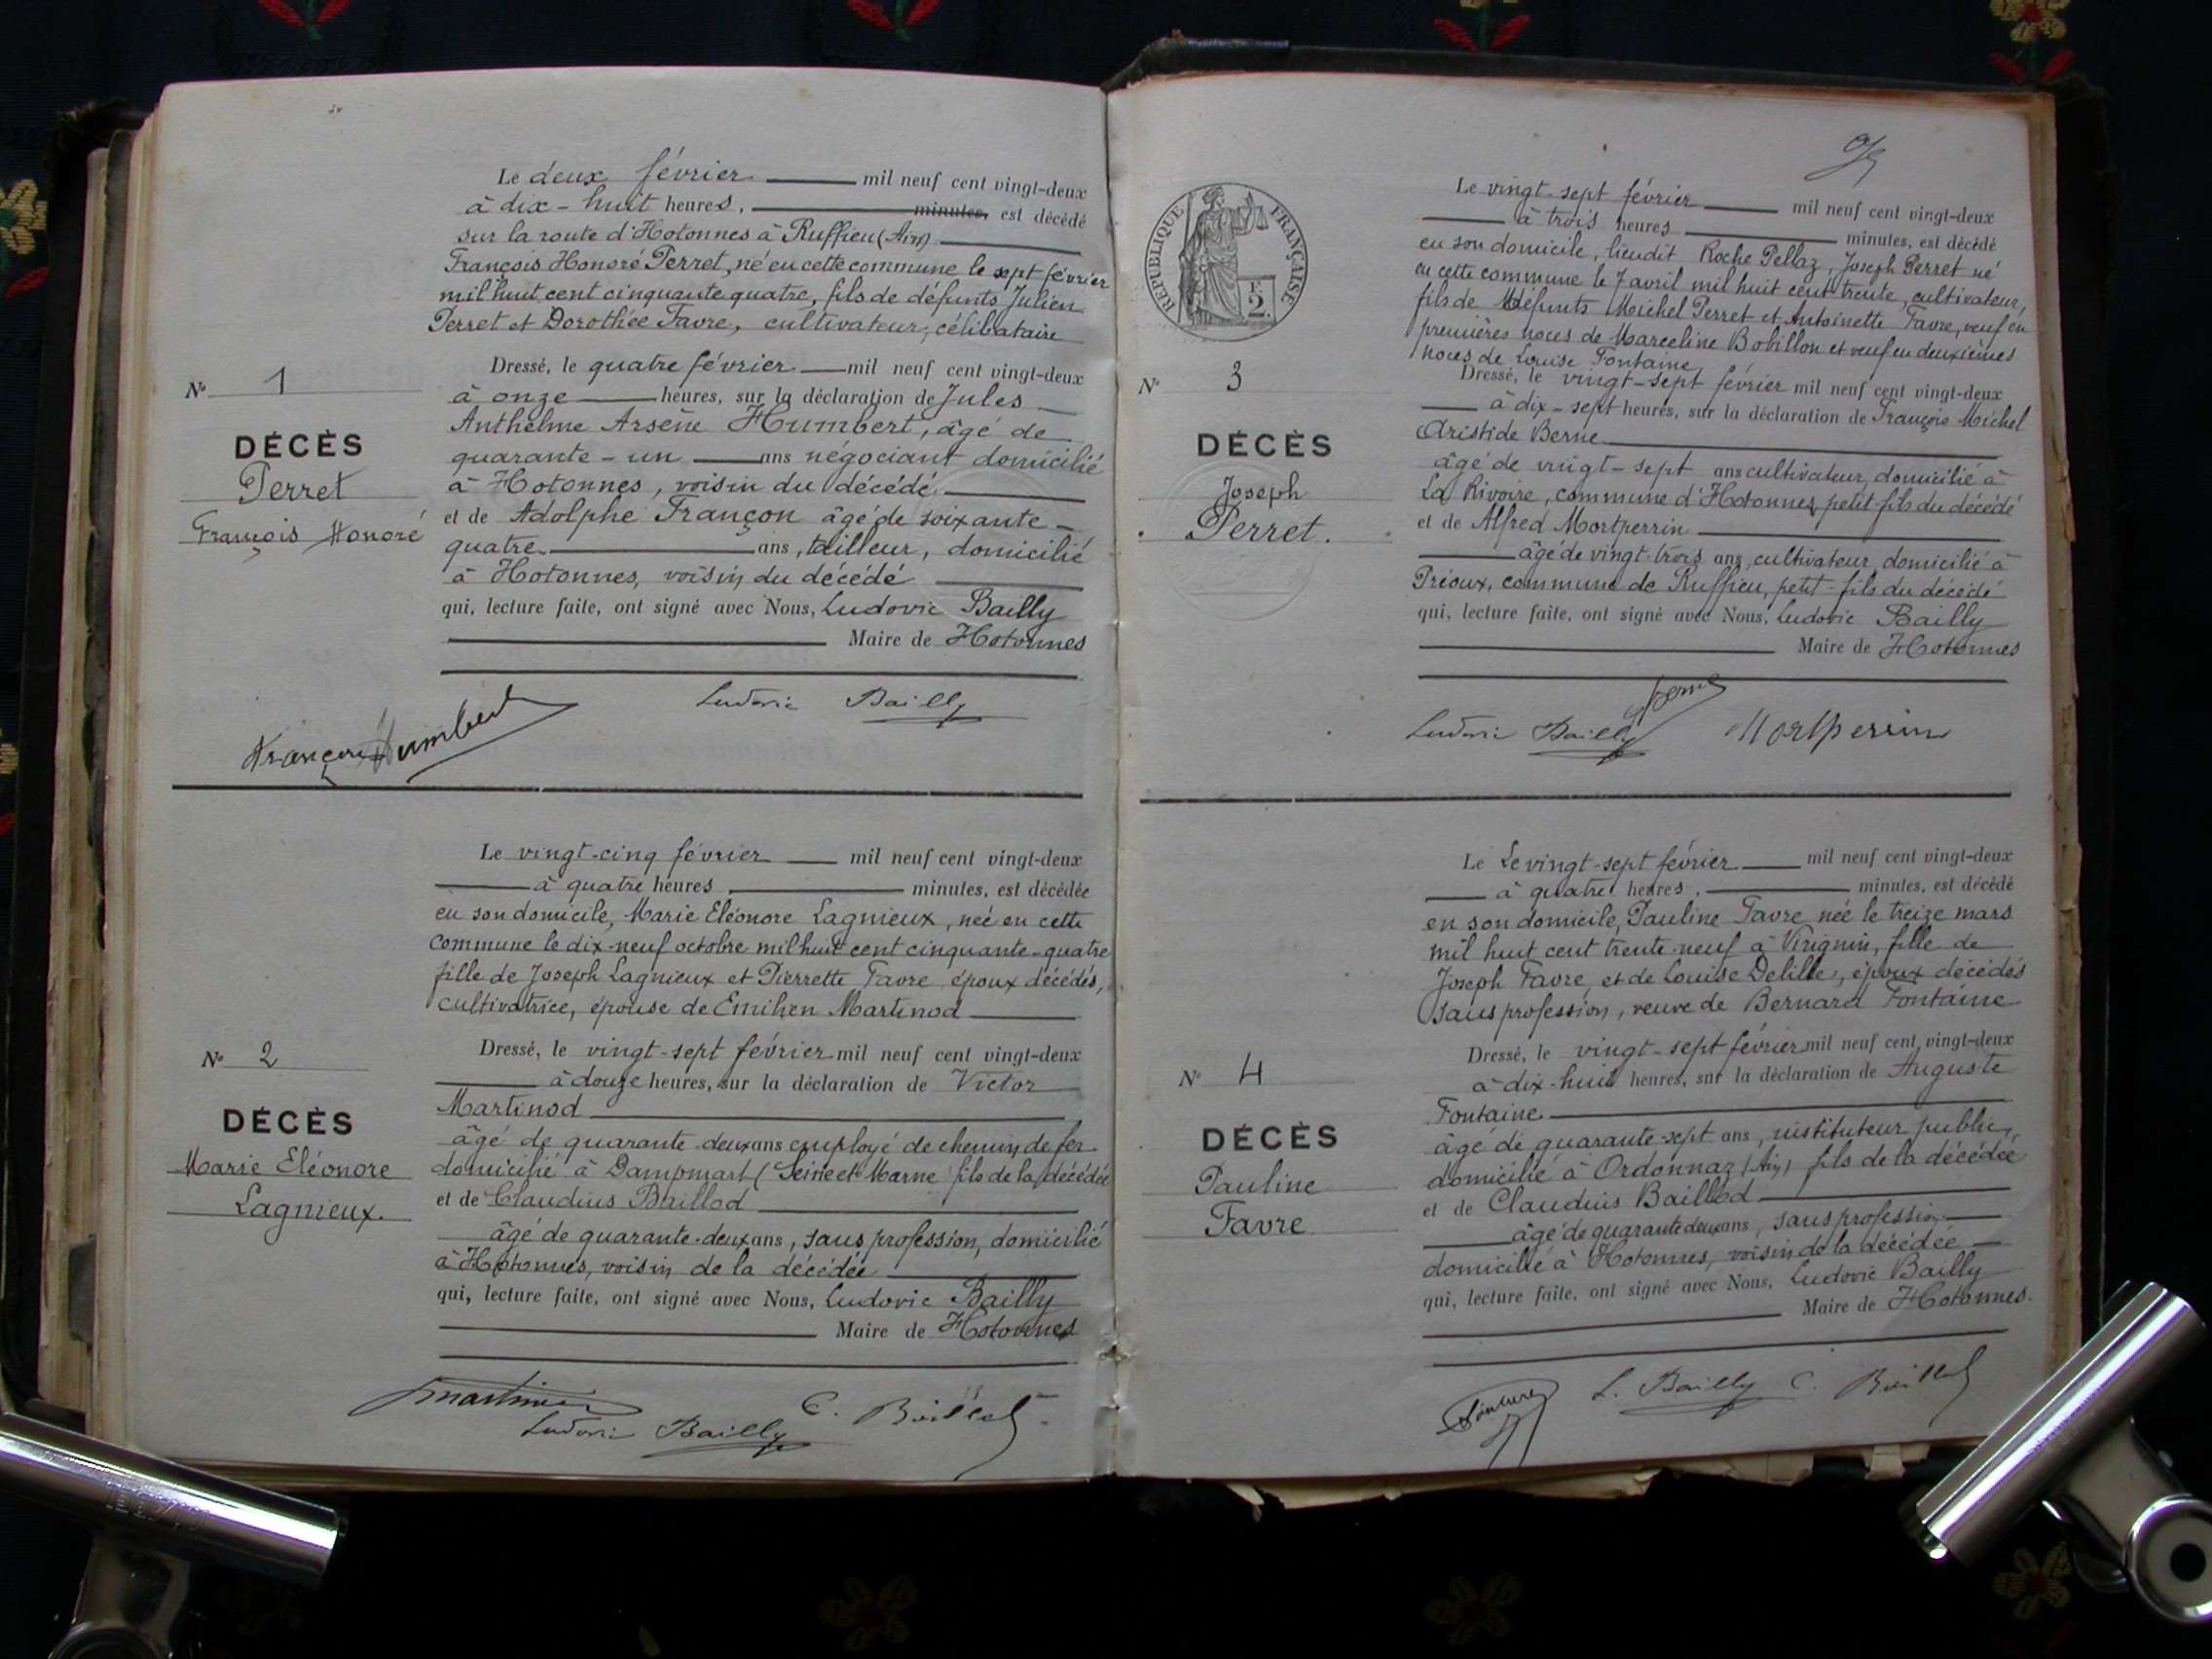 Le deux février mil neuf cent vingt-deux
à dix-huit heures, minutes, est décédé
sur la route d'Hotonnes à Ruffieu (Ain)
François Honoré Perret, né en cette commune le sept février
mil huit cent cinquante quatre, fils de défunts Julien
Perret et Dorothée Favre, cultivateur, célibataire
Dressé, le quatre février mil neuf cent vingt-deux
à onze heures, sur la déclaration de Jules
Anthelme Arsène Humbert, âgé de
quarante-un ans négociant domicilié
à Hotonnes, voisin du décédé
et de Adolphe Françon âgé de soixante-
quatre ans, tailleur, domicilié
à Hotonnes, voisin du décédé
qui, lecture faite, ont signé avec Nous, Ludovic Bailly
Maire de Hotonnes
N° 1
DÉCÈS
Perret
François Honoré
Françon Humbert
Ludovic Bailly
Le vingt-cinq février mil neuf cent vingt-deux
à quatre heures, minutes, est décédée
en son domicile, Marie Eléonore Lagnieux, neé en cette
commune le dix-neuf octobre mil huit cent cinquante-quatre
fille de Joseph Lagnieux et Pierrette Favre époux décédés,
cultivatrice, épouse de Emilien Martinod
Dressé, le vingt-sept février mil neuf cent vingt-deux
à douze heures, sur la déclaration de Victor
Martinod
âgé de quarante-deux ans employé de chemin de fer
domicilié à Dampmart (Seine et Marne fils de la décédée
et de Claudius Baillod
âgé de quarante-deux ans, sans profession, domicilié
à Hotonnes, voisin de la décédée
qui, lecture faite, ont signé avec Nous, Ludovic Bailly
Maire de Hotonnes
N° 2
DÉCÈS
Marie Eléonore
Lagnieux.
Martinod
Ludovic Bailly C. Baillod
RÉPUBLIQUE FRANÇAISE
2
Le vingt-sept février mil neuf cent vingt-deux
à trois heures minutes, est décédé
en son domicile, lieudit Roche Pellaz, Joseph Perret né
en cette commune le 7 avril mil huit cent trente, cultivateur,
fils de défunts Michel Perret et Antoinette Favre, veuf en
premières noces de Marceline Bobillon et veuf en deuxièmes
noces de Louise Fontaine
Dressé, le vingt-sept février mil neuf cent vingt-deux
à dix-sept heures, sur la déclaration de François Michel
Aristide Berne
âgé de vingt-sept ans cultivateur, domicilié à
La Rivoire, commune d'Hotonnes, petit-fils du décédé
et de Alfred Mortperrin
âgé de vingt-trois ans, cultivateur, domicilié à
Préoux, commune de Ruffieu, petit-fils du décédé
qui, lecture faite, ont signé avec Nous, Ludovic Bailly
Maire de Hotonnes
N° 3
DÉCÈS
Joseph
Perret.
Ludovic Bailly Berne Mortperrin
Le Le vingt-sept février mil neuf cent vingt-deux
à quatre heures, minutes, est décédé
en son domicile, Pauline Favre née le treize mars
mil huit cent trente-neuf à Virignin, fille de
Joseph Favre, et de Louise Delille, époux décédés
sans profession, veuve de Bernard Fontaine
Dressé, le vingt-sept février mil neuf cent vingt-deux
à dix-huit heures, sur la déclaration de Auguste
Fontaine
âgé de quarante-sept ans, instituteur public,
domicilié à Ordonnaz (Ain) fils de la décédée
et de Claudius Baillod
âgé de quarante deux ans, sans profession
domicilié à Hotonnes, voisin de la décédée
qui, lecture faite, ont signé avec Nous, Ludovic Bailly
Maire de Hotonnes.
N° 4
DÉCÈS
Pauline
Favre
Fontaine L. Bailly C. Baillod